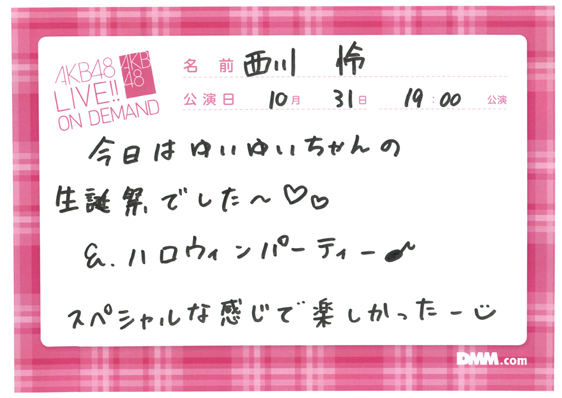 AKB48
LIVE!!
ON DEMAND
AKB
48
名前 西川 怜
公演日 10月 31日 19:00 公演
今日はゆいゆいちゃんの
生誕祭でした〜♡♡
&.ハロウィンパーティー♪
スペシャルな感じで楽しかったー
DMM.com